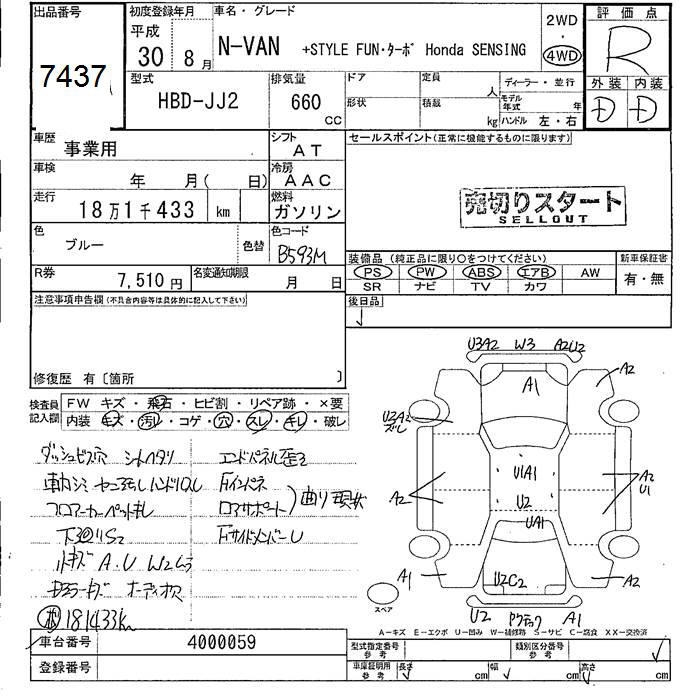 出品番号
7437
初度登録年月
平成
30 8 月
車名・グレード
N-VAN +STYLE FUN・ターボ Honda SENSING
2WD
・
4WD
評価点
R
外装 内装
D D
型式
HBD-JJ2
排気量
660
CC
ドア
形状
定員
人
積載
kg
ディーラー・並行
モデル年式 年
ハンドル 左・右
車歴
事業用
シフト
AT
車検
年 月( 日)
冷房
AAC
走行
18万1千433 km
燃料
ガソリン
色
ブルー
色替
色コード
B593M
R券
7,510円
名変通知期限
月 日
セールスポイント(正常に機能するものに限ります)
売切りスタート
SELLOUT
装備品 (純正品に限り○をつけてください)
PS PW ABS エアB AW
SR ナビ TV カワ
新車保証書
有・無
後日品
注意事項申告欄(不具合内容等は具体的に記入して下さい)
修復歴 有〔箇所 〕
検査員記入欄
FW キズ・飛石・ヒビ割・リペア跡・×要
内装 キズ・汚レ・コゲ・穴・スレ・キレ・破レ
ダッシュビス穴 シートヘタリ
フロアーカーペットキレ
下廻りS2
小キズ A.U W2ムラ
181433km
エンドパネル歪2
Fインパネ
ロアサポート
曲り 現状
FサイドメンバーU
U3A2 W3 A2U2
A1
A2
U3A2
ズレ
U1A1
U2
UA1
A2
A2
U1
A1
U2C2
A2
スペア
U2
A1
A－キズ E－エクボ U－凹み W－補修跡 S－サビ C－腐食 XX－交換済
車台番号
4000059
登録番号
型式指定番号
参考
類別区分番号
参考
車庫証明用
参考
長さ cm
幅 cm
高さ cm